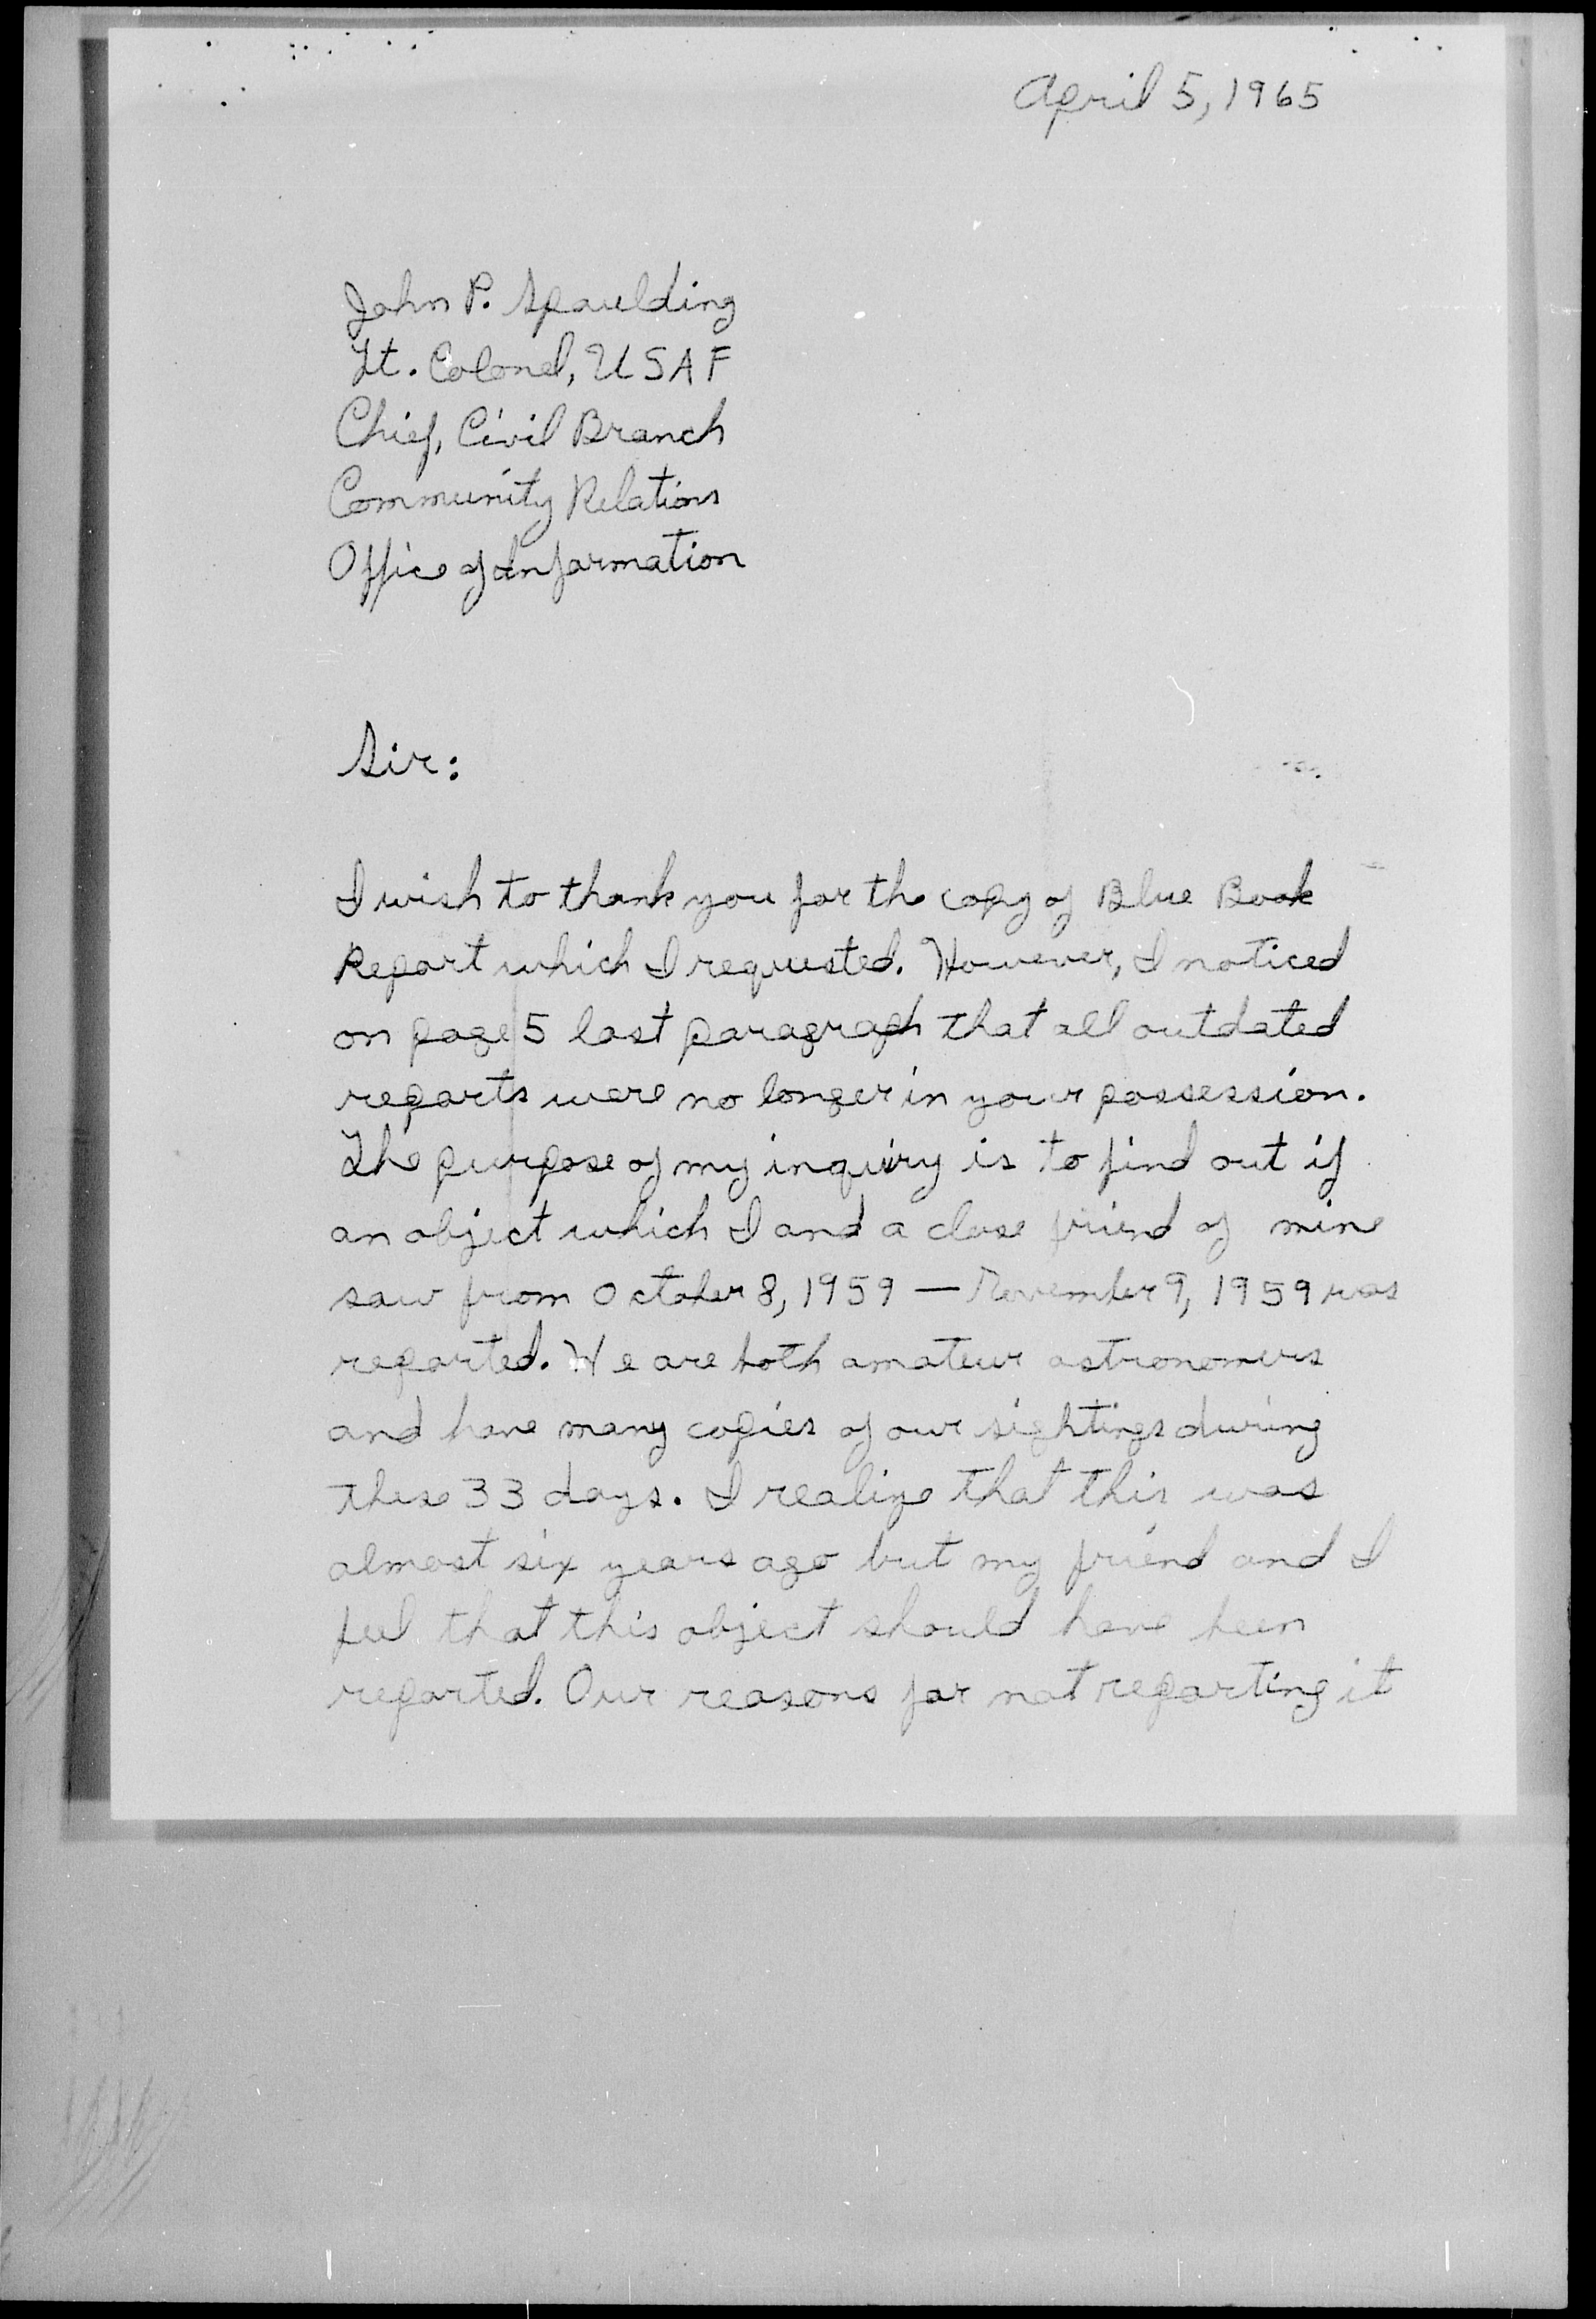 April 5, 1965
John P. Spaulding
Lt. Colonel, USAF
Chief, Civil Branch
Community Relations
Office of Information
Sir:
I wish to thank you for the copy of Blue Book
Report which I requested. However, I noticed
on page 5 last paragraph that all outdated
reports were no longer in your possession.
The purpose of my inquiry is to find out if
an object which I and a close friend of mine
saw from October 8, 1959 — November 9, 1959 was
reported. We are both amateur astronomers
and have many copies of our sightings during
these 33 days. I realize that this was
almost six years ago but my friend and I
feel that this object should have been
reported. Our reasons for not reporting it